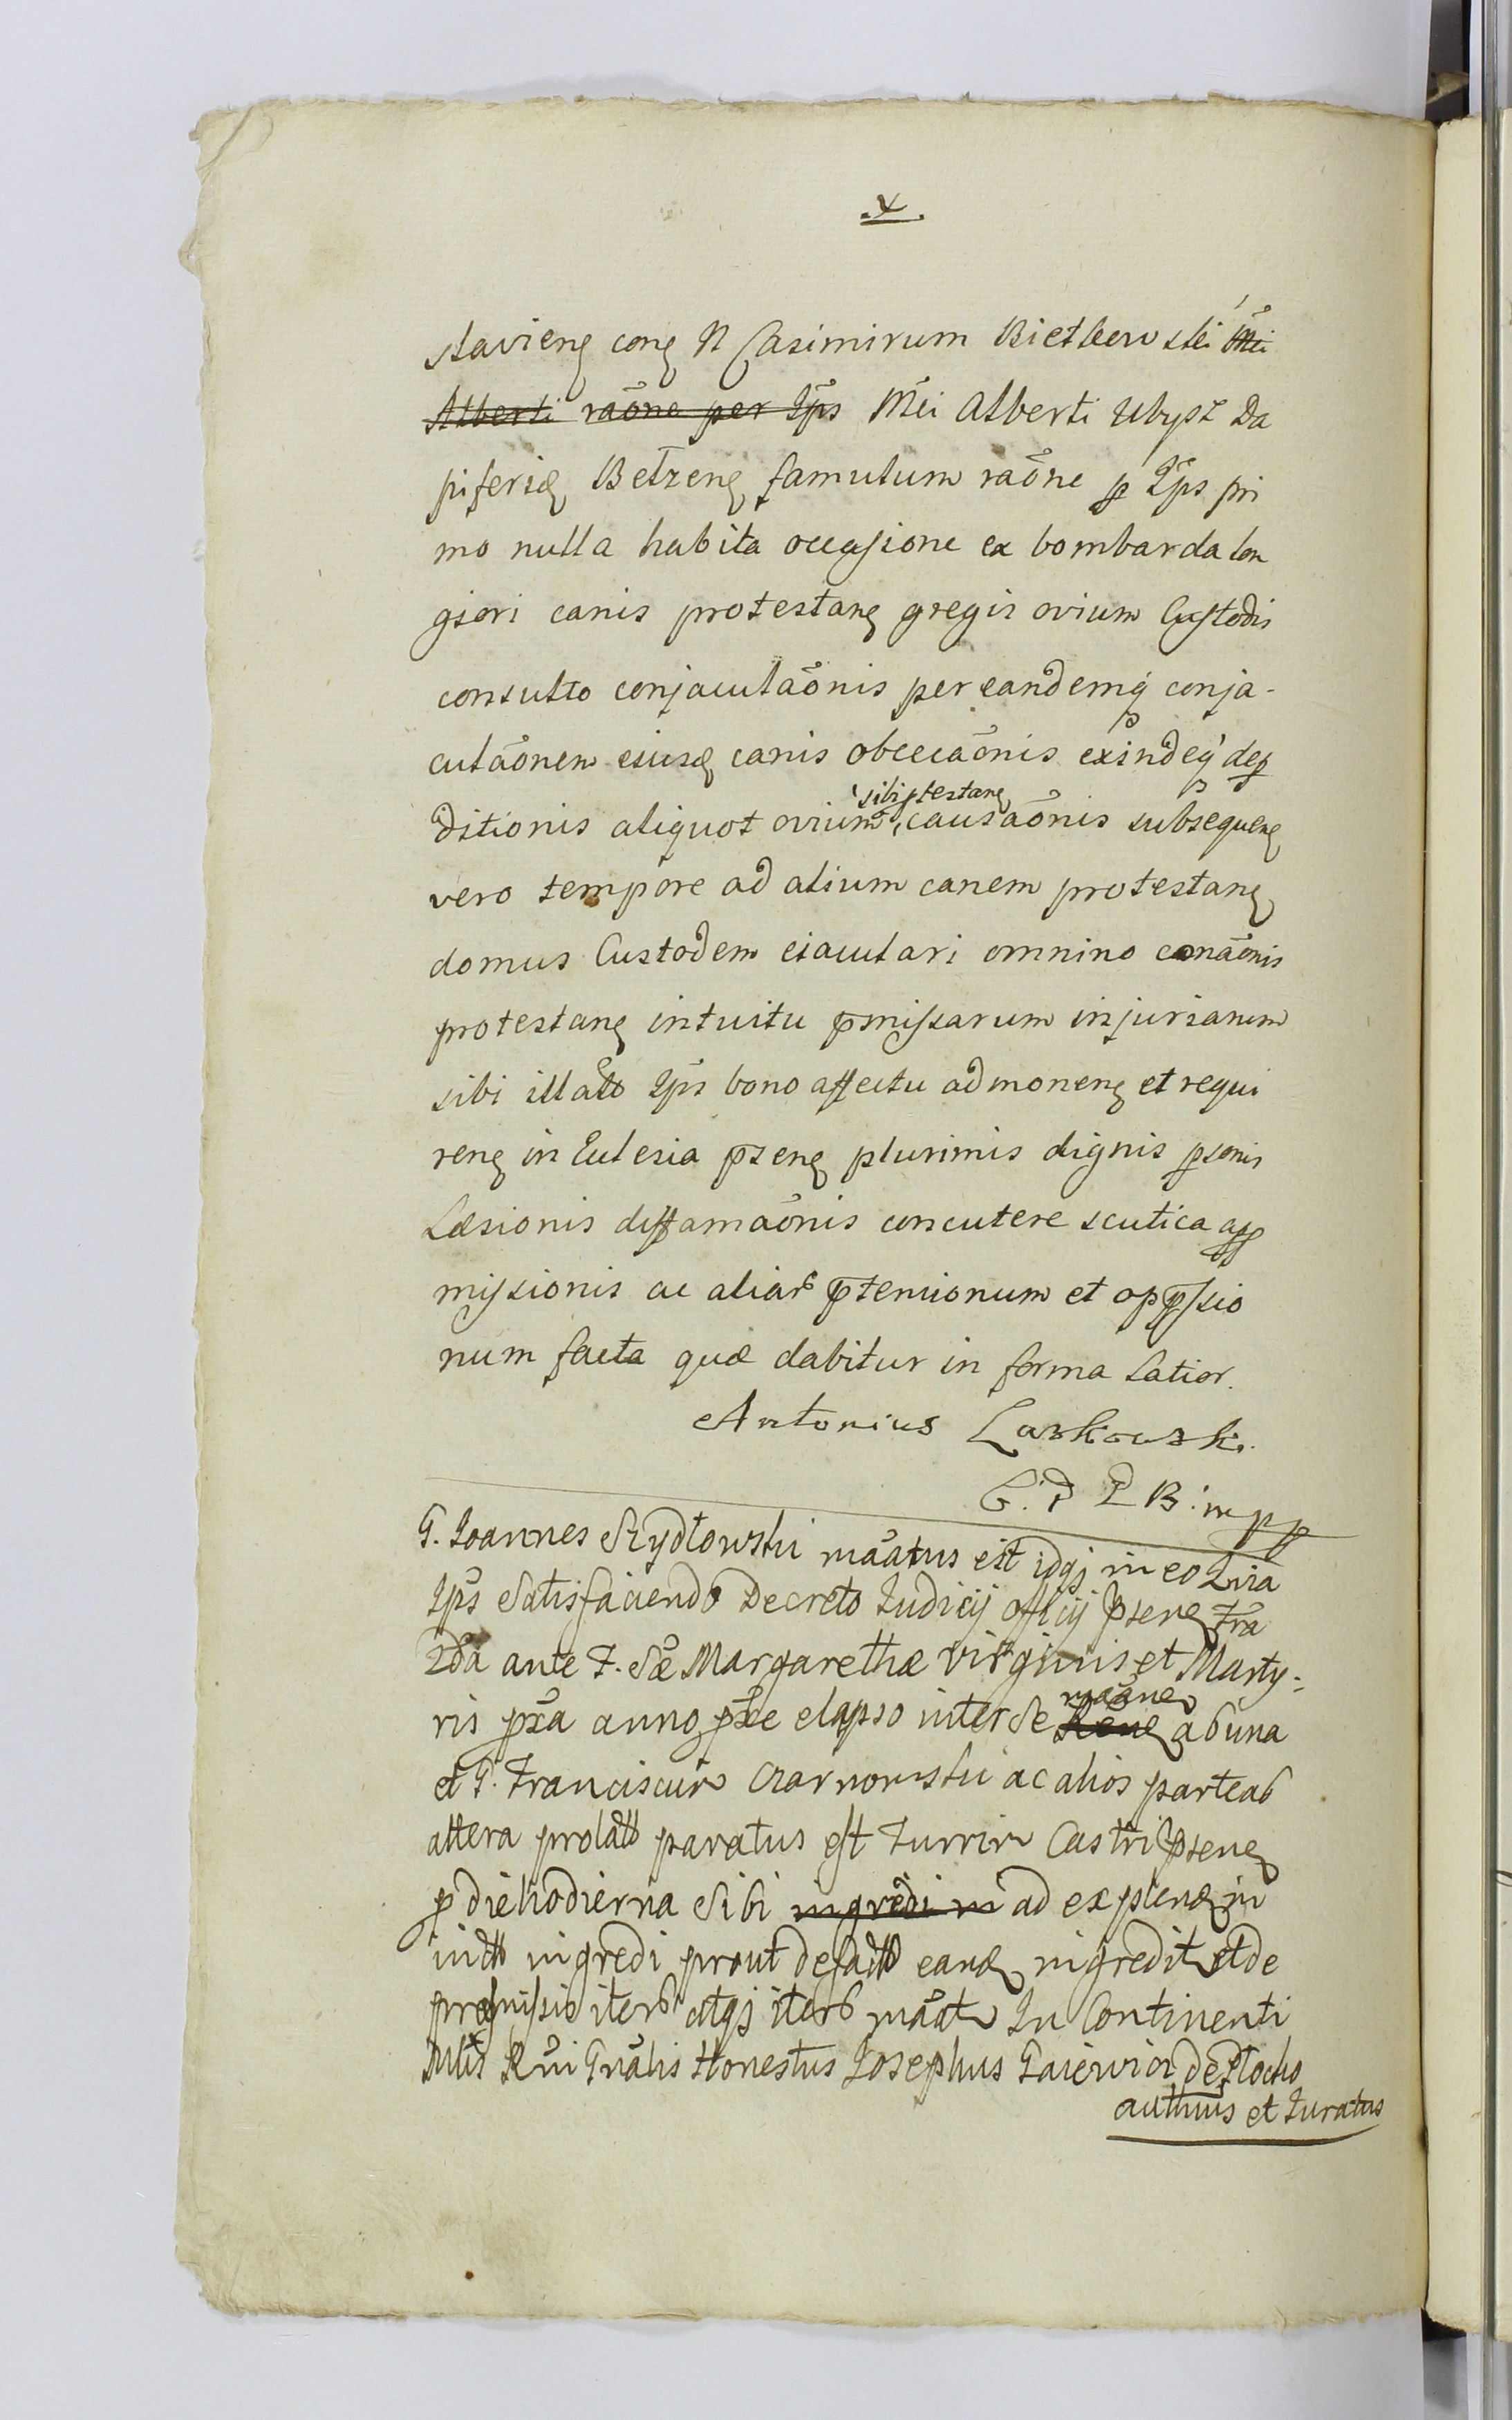 .x.
stavieng cong N Casimirum Bietkowski Mēi
Alberti raōne per Ips Mēi Alberti Ubysz Da
piferid Betzeng famulum raōne p Ips pri
mo nulla habita occasione ex bombarda lon
giori canis protestang gregis ovium Custodis
consulto conjaculaōnis per eandemq conja-
culaōnem eiusd canis obcecaōnis exindeq dep
ditionis aliquot ovium sibi ptestang causaōnis subsequeng
vero tempore ad alium canem protestang
domus Custodem eiaculari omnino conaōnis
protestang intuitu pmissarum injuriarum
sibi illatt Ips bono affectu admoneng et requi
reng in Eclesia pseng plurimis dignis psonis
Læsionis diffamaōnis concutere scutica app
missionis ac aliar ptensionum et oppssio
num facta quæ dabitur in forma latior.
Antonius Laskowski.
C. P P B. mpp
G. Joannes Szydłowski māatus est idqj in eo Quia
Ips Satisfaciendo Decreto Judicij Officij pseng Fra
2da ante F. Sæ Margarethæ Virginis et Marty-
ris pxa anno pxe elapso inter Se Reng māaneg ab una
et G. Franciscum Czarnomski ac alios parte ab
altera prolatt paratus est Turrim Castri pseng
p die hodierna Sibi ingredi in ad explend in
indtt ingredi prout defactt eand ingredit et de
præmissis iterb atqj iterb māatr In Continenti
Mlis Rñi Gnālis Honestus Josephus Gaiewicz de Plocko
authūs et Juratus